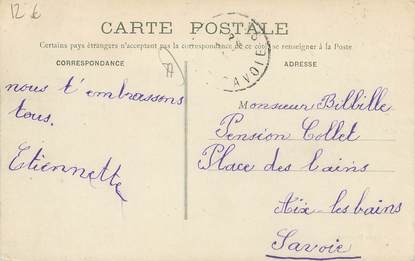 12 €
CARTE POSTALE
Certains pays étrangers n'acceptant pas la correspondance de ce côté se renseigner à la Poste
CORRESPONDANCE
ADRESSE
AVOIE
nous t'embrassons
tous.
Etiennette
Monsieur Bilbille
Pension Collet
Place des bains
Aix-les bains
Savoie